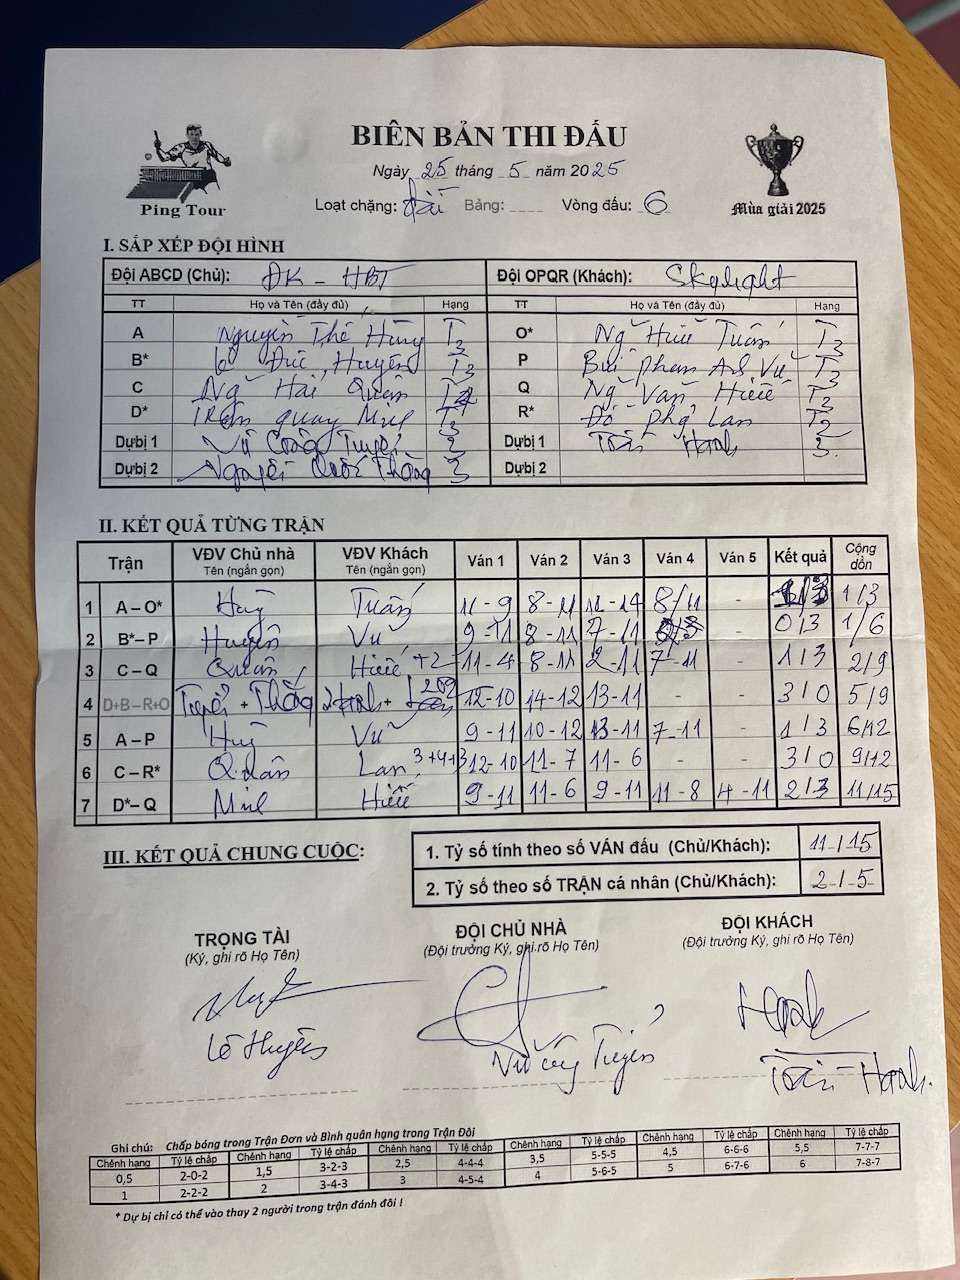 BIÊN BẢN THI ĐẤU
Ngày 25 tháng 5 năm 2025
Ping Tour
Loạt chặng: Bảng: Vòng đấu: 6
Mùa giải 2025
I. SẮP XẾP ĐỘI HÌNH
Đội ABCD (Chủ): ĐK - HBT Đội OPQR (Khách): Skylight
TT Họ và Tên (đầy đủ) Hạng TT Họ và Tên (đầy đủ) Hạng
A Nguyễn Thế Hùng T3 O* Ng Hữu Tuấn T3
B* Lê Đức Huyên T3 P Bùi Phan Vũ T3
C Ng Hải Quân Q Ng Văn Hiếu T2
D* Trần Quang T3 R* Đỗ Lan T2
Dự bị 1 Vũ Công Tuyến 2 Dự bị 1 Trần Hạnh 3
Dự bị 2 Nguyễn Thắng 3 Dự bị 2
II. KẾT QUẢ TỪNG TRẬN
Trận VĐV Chủ nhà Tên (ngắn gọn) VĐV Khách Tên (ngắn gọn) Ván 1 Ván 2 Ván 3 Ván 4 Ván 5 Kết quả Cộng dồn
1 A – O* Tuấn 11 - 9 8 - 11 12 - 14 8/11 - 1/3 1/3
2 B* – P Huyên Vũ 9 - 11 8 - 11 7 - 11 - 0/3 1/6
3 C – Q Quân Hiếu +2 11 - 4 8 - 11 2 - 11 7 - 11 - 1/3 2/9
4 D+B – R+O + Thắng 12 - 10 14 - 12 13 - 11 - - 3/0 5/9
5 A – P Vũ 9 - 11 10 - 12 13 - 11 7 - 11 - 1/3 6/12
6 C – R* Quân Lan 3+4+3 12 - 10 11 - 7 11 - 6 - - 3/0 9/12
7 D* – Q Hiếu 9 - 11 11 - 6 9 - 11 11 - 8 4 - 11 2/3 11/15
III. KẾT QUẢ CHUNG CUỘC:
1. Tỷ số tính theo số VÁN đấu (Chủ/Khách): 11/15
2. Tỷ số theo số TRẬN cá nhân (Chủ/Khách): 2/5
TRỌNG TÀI ĐỘI CHỦ NHÀ ĐỘI KHÁCH
(Ký, ghi rõ Họ Tên) (Đội trưởng Ký, ghi rõ Họ Tên) (Đội trưởng Ký, ghi rõ Họ Tên)
Lê Huyên Trần Hạnh
Ghi chú: Chấp bóng trong Trận Đơn và Bình quân hạng trong Trận Đôi
Chênh hạng Tỷ lệ chấp Chênh hạng Tỷ lệ chấp Chênh hạng Tỷ lệ chấp Chênh hạng Tỷ lệ chấp Chênh hạng Tỷ lệ chấp Chênh hạng Tỷ lệ chấp
0,5 2-0-2 1,5 3-2-3 2,5 4-4-4 3,5 5-5-5 4,5 6-6-6 5,5 7-7-7
1 2-2-2 2 3-4-3 3 4-5-4 4 5-6-5 5 6-7-6 6 7-8-7
* Dự bị chỉ có thể vào thay 2 người trong trận đánh đôi !